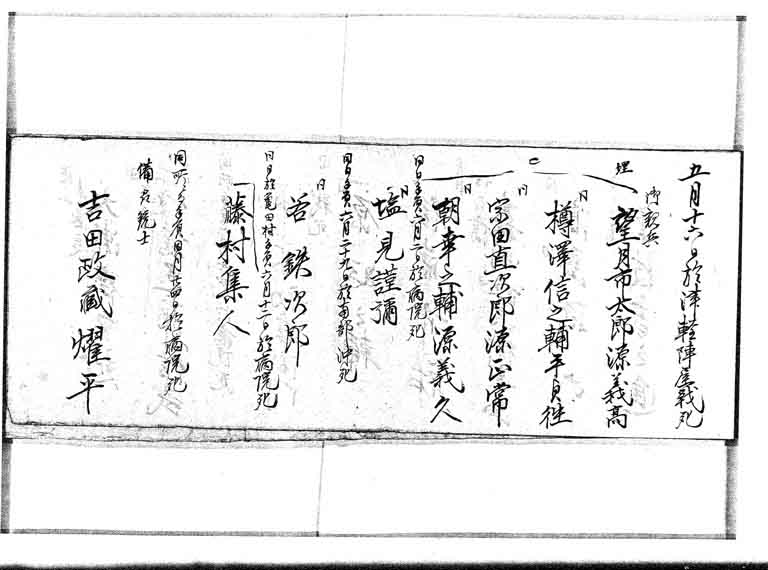 五月十六日於津軽陣屋戦死
御親兵
埋
望月市太郎源義高
同
樽澤信之輔平貞継
同
宗田直次郎源正常
同
朝幸之輔源義久
同日手負六月二日於病院死
同
塩見謹彌
同日手負六月二十九日於南部沖死
同
谷鉄次郎
同日於亀田村手負六月十二日於病院死
藤村集人
同所ニ而手負同月廿四日於病院死
備前銃士
吉田政蔵燿平